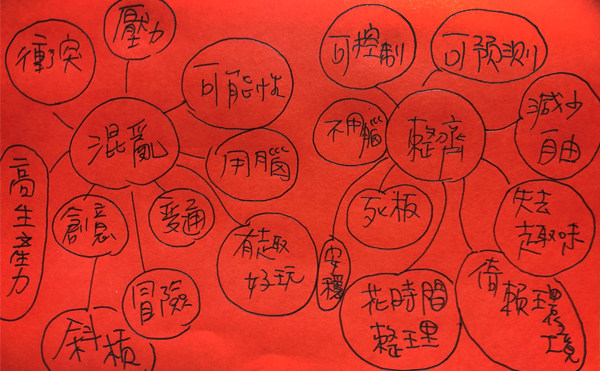 衝突
壓力
可能性
混亂
用腦
高生產力
創意
變通
冒險
有趣
好玩
可控制
可預測
減少
自由
不用腦
整齊
死板
失去
趣味
安穩
花時間
整理
倚賴環境